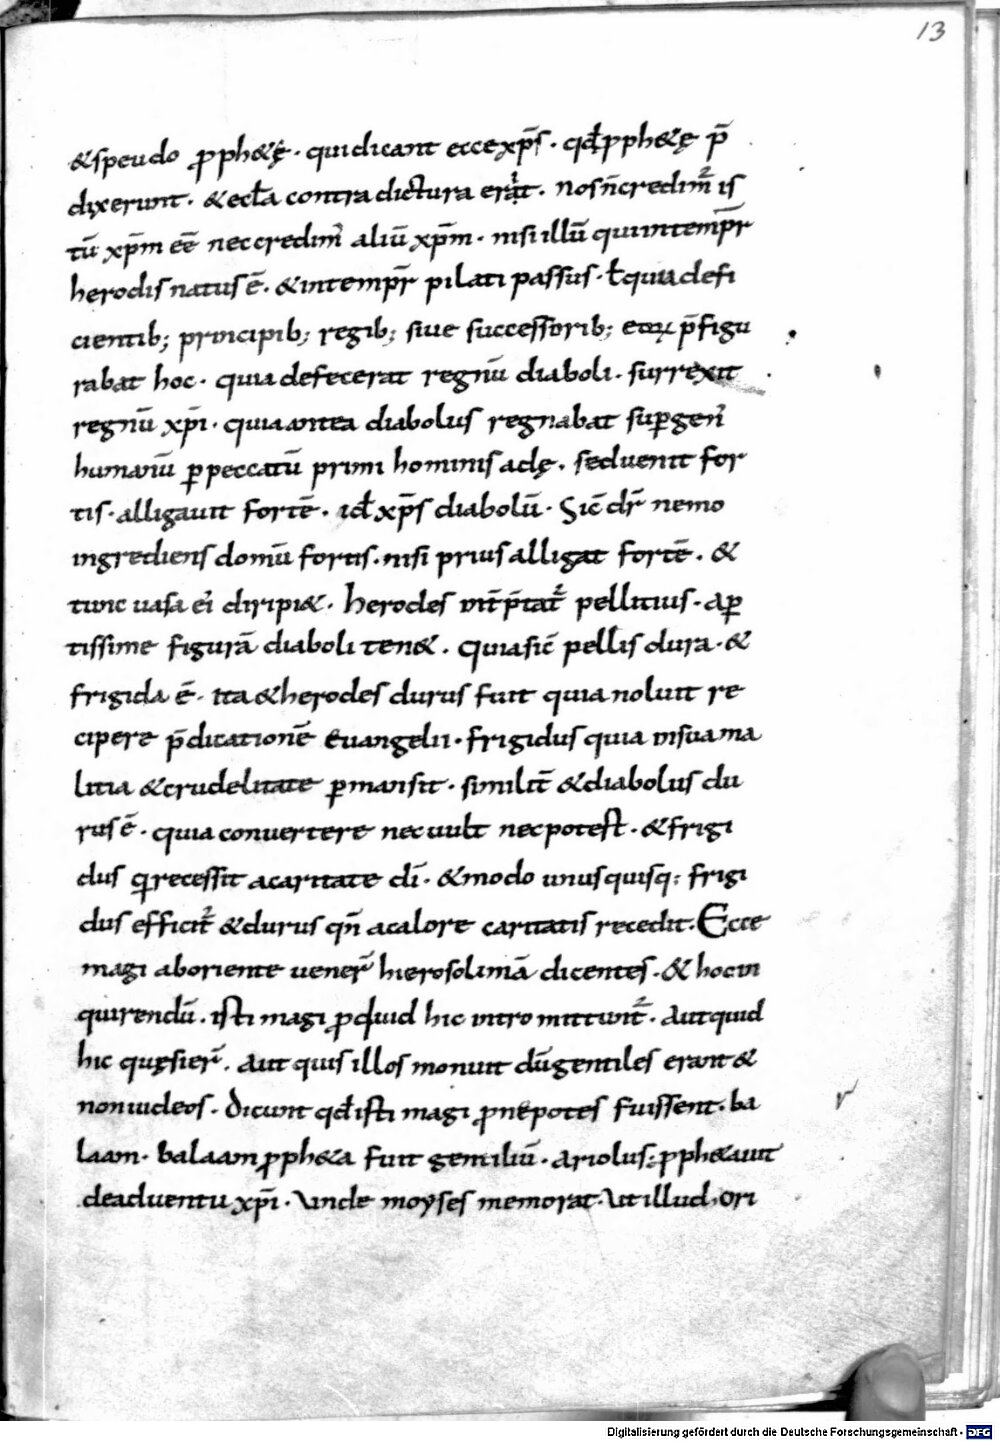 13
&speudo ꝓph&ę · quidicant eccexp̄s · qđꝓph&ę p̄
dixerunt · &eccła contradictura erat · nosn̄credim᷒ is
tū xp̄m eē neccredim᷒ aliū xp̄m · nisi illū quiintemp̄r
herodis natus ē · &intemp̄r pilati passus · ł quia defi
cientib; principib; regib; siue successorib; eoꝝ p̄figu
rabat hoc · quia defecerat regnū diaboli · surrexit
regnū xp̄i · quia antea diabolus regnabat suꝑ gen᷒
humanū ꝑ peccatū primi hominis adę · seduenit for
tis · alligauit fortē · id xp̄s diabolū · Sic̄ dr̄ nemo
ingrediens domū fortis · nisi prius alligat fortē · &
tunc uasa ei᷒ diripi& · herodes int̄p̄tat᷒ pellitius · Aꝑ
tissime figurā diaboli ten& · Quia sic̄ pellis dura · &
frigida ē · ita &herodes durus fuit quia noluit re
cipere p̄dicationē Euangelii · frigidus quia insua ma
litia &crudelitate ꝑmansit · similit̄ &diabolus du
rus ē · quia conuertere nec uult necpotest · &frigi
dus q̣recessit acaritate dī · &modo unus quisq; frigi
dus efficit᷒ &durus qn̄ acalore caritatis recedit · Ecce
magi aboriente uener̄ hierosolimā dicentes · & hoc in
quirendū · isti magi ꝓquid hic intro mittunt᷒ · Aut quid
hic quęsier̄ · Aut quis illos monuit dū gentiles erant &
non iudeos · Dicunt qđ isti magi ꝓnepotes fuissent · ba
laam · balaam ꝓph&a fuit gentiliū · Ariolus ; ꝓph&auit
deaduentu xp̄i · Unde moyses memorat · Ut illud · ori
Digitalisierung gefördert durch die Deutsche Forschungsgemeinschaft - DFG